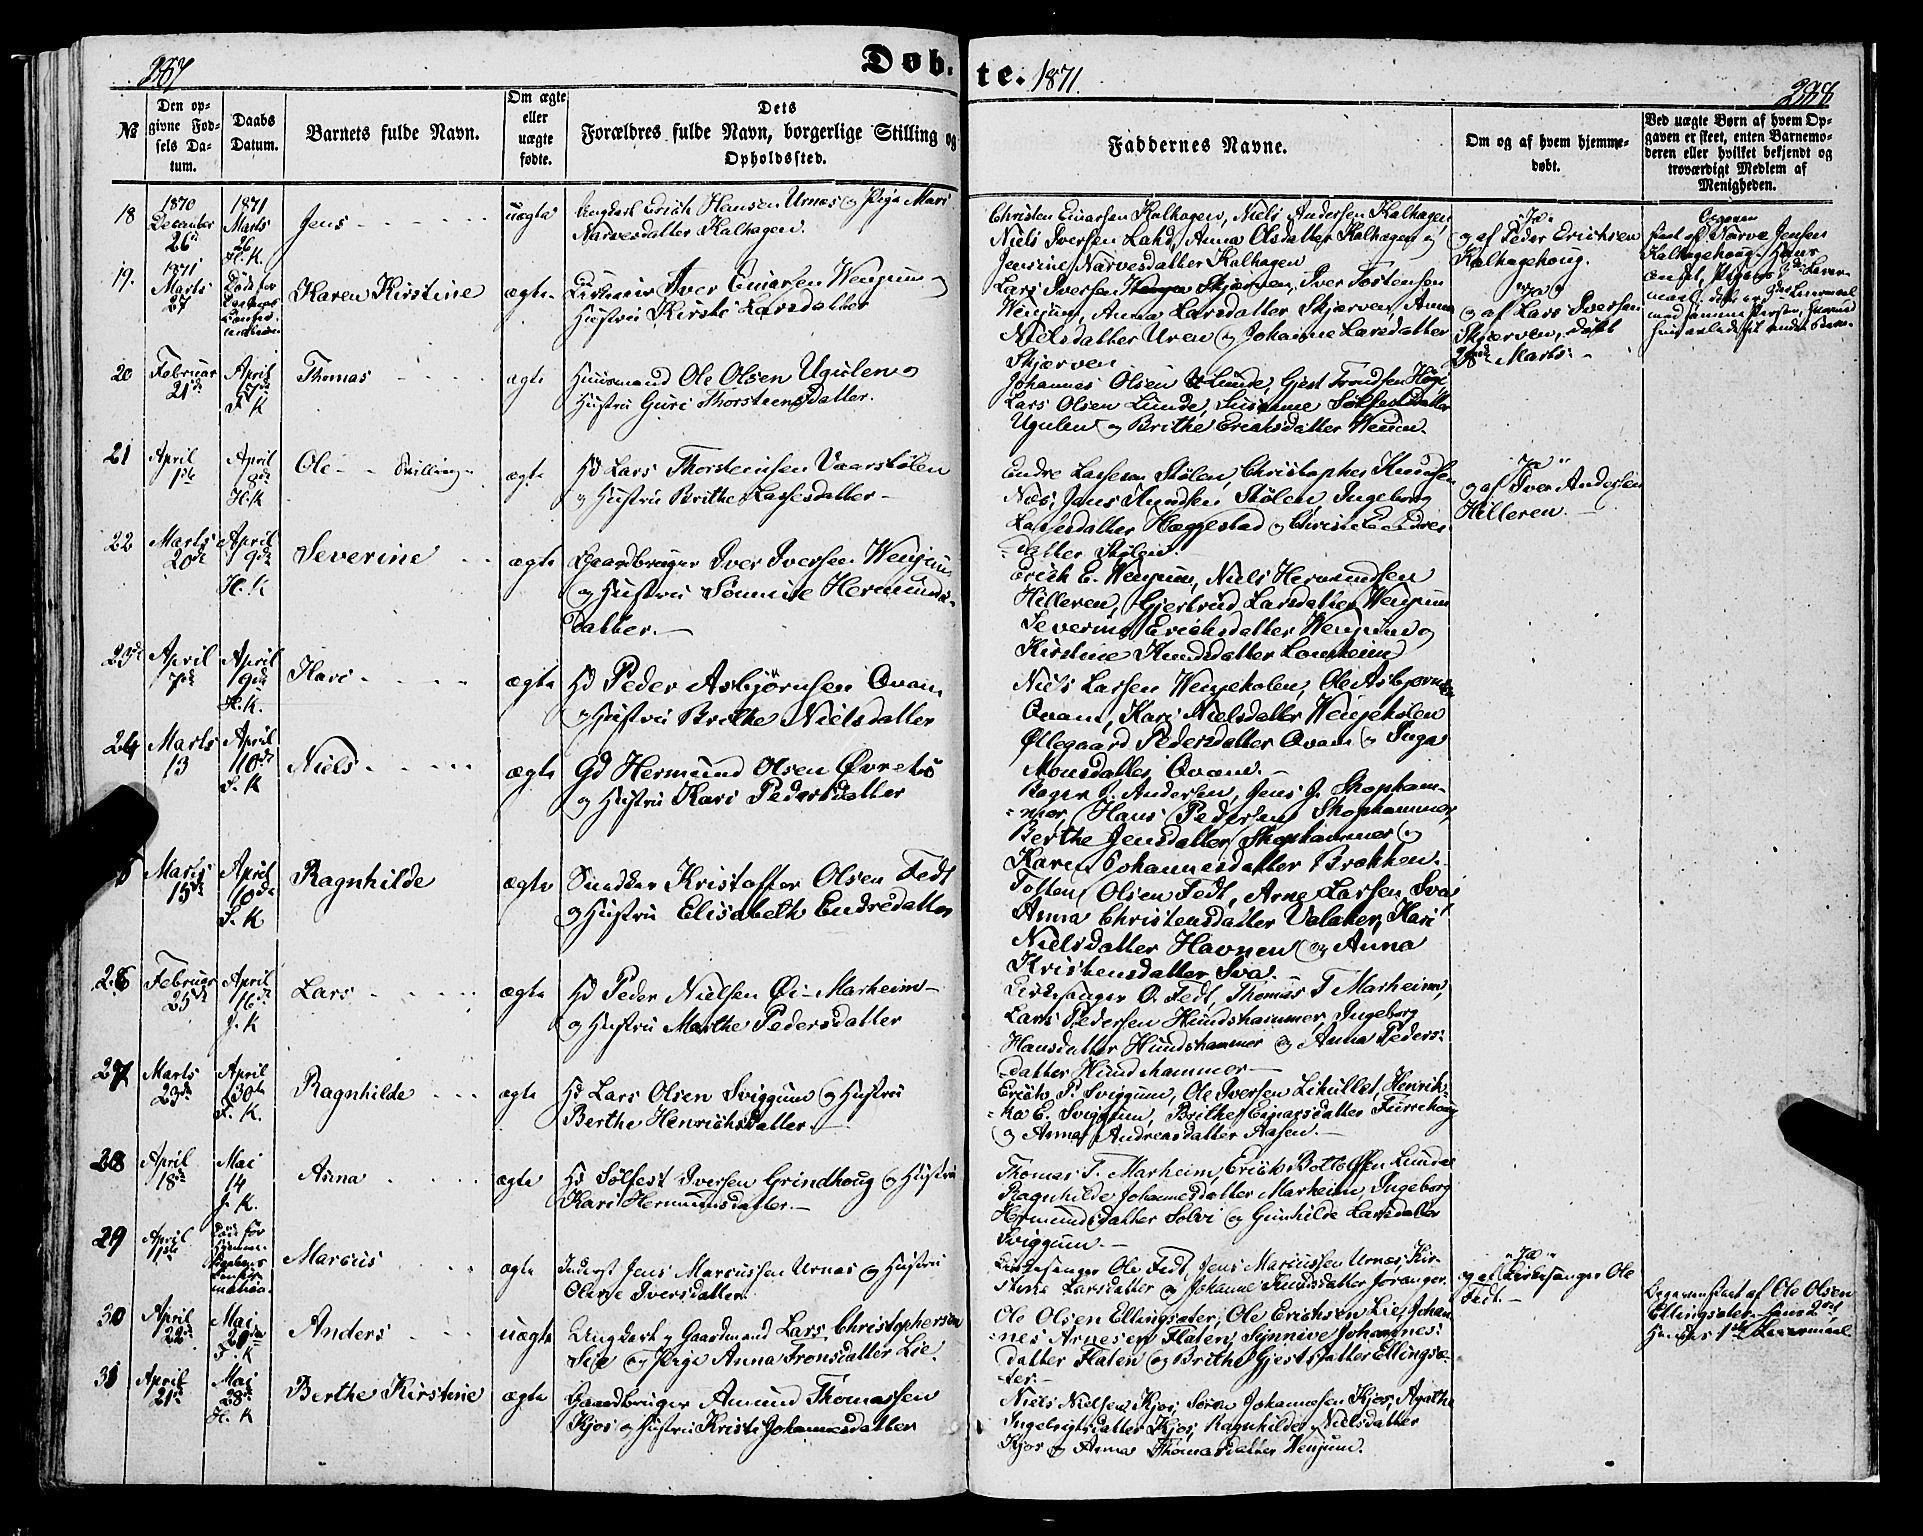 287
Døb-te. 1871.
288
№
Den opgivne Fødsels Datum.
Daabs Datum.
Barnets fulde Navn.
Om ægte eller uægte fødte.
Dets Forældres fulde Navn, borgerlige Stilling og Opholdssted.
Faddernes Navne.
Om og af hvem hjemmedøbt.
Ved uægte Børn af hvem Opgaven er skeet, enten Barnemoderen eller hvilket bekjendt og troværdigt Medlem af Menigheden.
18
1870 December 26de
1871 Marts 26 H. K.
Jens
uægte
Ungkarl Erich Hansen Urnæs og Pige Mari
Narvesdatter Kalhagen.
Christen Einarsen Kalhagen, Niels Andersen Kalhagen,
Niels Iversen Lahd, Anna Olsdatter Kalhagen og
Jensine Narvesdatter Kalhagen
Ja
og af Peder Erichsen
Kalhagehoug.
Opgaven
skeet af Narve Jensen
Kalhagehoug. Hans
19.
1871 Marts 27
Karen Kirstine
ægte
Iver Einarsen Wenjum og
Hustru Kirsti Larsdatter
Lars Iversen Skjerven, Iver Torstensen
Wenjum, Anna Larsdatter Skjerven, Anna
Nielsdatter Uren og Johanne Larsdatter
Skjerven
Ja
og af Lars Iversen
Skjerven, døbt
Marts.
20
Februar 21de
April
Thomas
ægte
Huusmand Ole Olsen Ugulen og
Hustru Guri Thorsteensdatter.
Johannes Olsen Lunde, Gjest Trondsen Høge
Lars Olsen Lunde, Susanne
Ugulen og Brithe Erichsdatter
21
April 1ste
April 8de H.K
Ole - Tvilling
ægte
Hd Lars Thorsteinsen Vaarstølen
og Hustru Brithe Lassesdatter
Endre Lassesen Stølen, Christopher Knudsen
Næs, Jens Stølen, Ingeborg
Lassesdatter Hæggestad og Endres-
datter Stølen.
Ja
og af Iver Andersen
Hilleren.
22
Marts 20de
April 9de H.K
Severine
ægte
Gaardbruger Iver Iversen Wenjum
og Hustru Sønnive Hermunds-
datter.
Erich E. Wenjum, Niels Hermundsen
Hilleren, Gjertrud Larsdatter Wenjum
Severine Erichsdatter Wenjum og
Kirstine Knudsdatter
23de
April 7de
April 9de H.K.
Kari
ægte
Hd Peder Asbjørnsen Qvam
og Hustru Brithe Nielsdatter
Niels Larsen Wenjeholen, Ole Asbjørnsen
Qvam, Kari Nielsdatter Wenjeholen
Øllegaard Pedersdatter Qvam og Inga
Monsdatter Qvam.
24
Marts 13
April 10de S. K
Niels
ægte
Gd Hermund Olsen Øvretø
og Hustru Kari Pedersdatter
Andersen, Jens J. Skopham-
mer, Hans Pedersen Skophammer,
Berthe Jensdatter Skophammer og
Karen Johannesdatter Brækken.
Marts 15de
April 10de S. K
Ragnhilde
ægte
Kristoffer Olsen Fedt
og Hustru Elisabeth Endredatter
Tosten Olsen Fedt, Arne Larsen Sva,
Anna Christensdatter Valaker, Kari
Nielsdatter Havnen og Anna
Kristensdatter Sva.
26
Februar 25de
April 16de J. K
Lars
ægte
Hd Peder Nielsen Øi-Marheim
og Hustru Marthe Pedersdatter
Kirkesanger O. Fedt, Thomas T Marheim,
Lars Pedersen Hundshammer, Ingeborg
Hansdatter Hundshammer og Anna Peders-
datter Hundshammer
27
Marts 23de
April 30te F. K.
Ragnhilde
ægte
Hd Lars Olsen Sviggum og Hustru
Berthe Henrichsdatter.
Erich P. Sviggum, Ole Iversen Likullet, Henrik-
ka E. Sviggum, Brithe Einarsdatter Furrehoug
og Anna Andreasdatter Aasen.
28
April 18de
Mai 14 J. K.
Anna
ægte
Hd Sølfest Iversen Grindhoug og Hustru
Kari Hermundsdatter.
Thomas T. Marheim, Erich Botolfsen Lunde
Ragnhilde Johannesdatter Marheim, Ingeborg
Hermundsdatter Solvi og Gunhilde Larsdatter
Sviggum.
29
April 1ste
Marcus
ægte
Jens Marcussen Urnæs og Hustru
Oline Iversdatter
Kirkesanger Ole Fedt, Jens Marcussen Urnæs, Kir-
stine Larsdatter og Johanne Knudsdatter Joranger.
Ja
og af Kirkesanger Ole
Fedt.
30
April 22de
Mai F. K
Anders
uægte
Ungkarl og Gaardmand Lars Christophersen
Lie og Pige Anna Tronsdatter Lie.
Ole Olsen Ellingsæter, Ole Erichsen Lie, Johan-
nes Arnesen Flaten, Synnive Johannes-
datter Flaten og Brithe Gjestsdatter Ellingsæ-
ter.
skeet af Ole Olsen
Ellingsæter. Hans 2det
Hendes 1ste Leiermaal
31
April 21de
Mai 28de H. K
Berthe Kirstine
ægte
Gaardbruger Amund Thomassen
Kjos og Hustru Kristi Johannesdatter
Niels Nielsen Kjos, Søren Johannesen Kjos, Agathe
Ingebrigtsdatter Kjos, Ragnhilde Nielsdatter
Kjos og Anna Thomasdatter Wenjum.